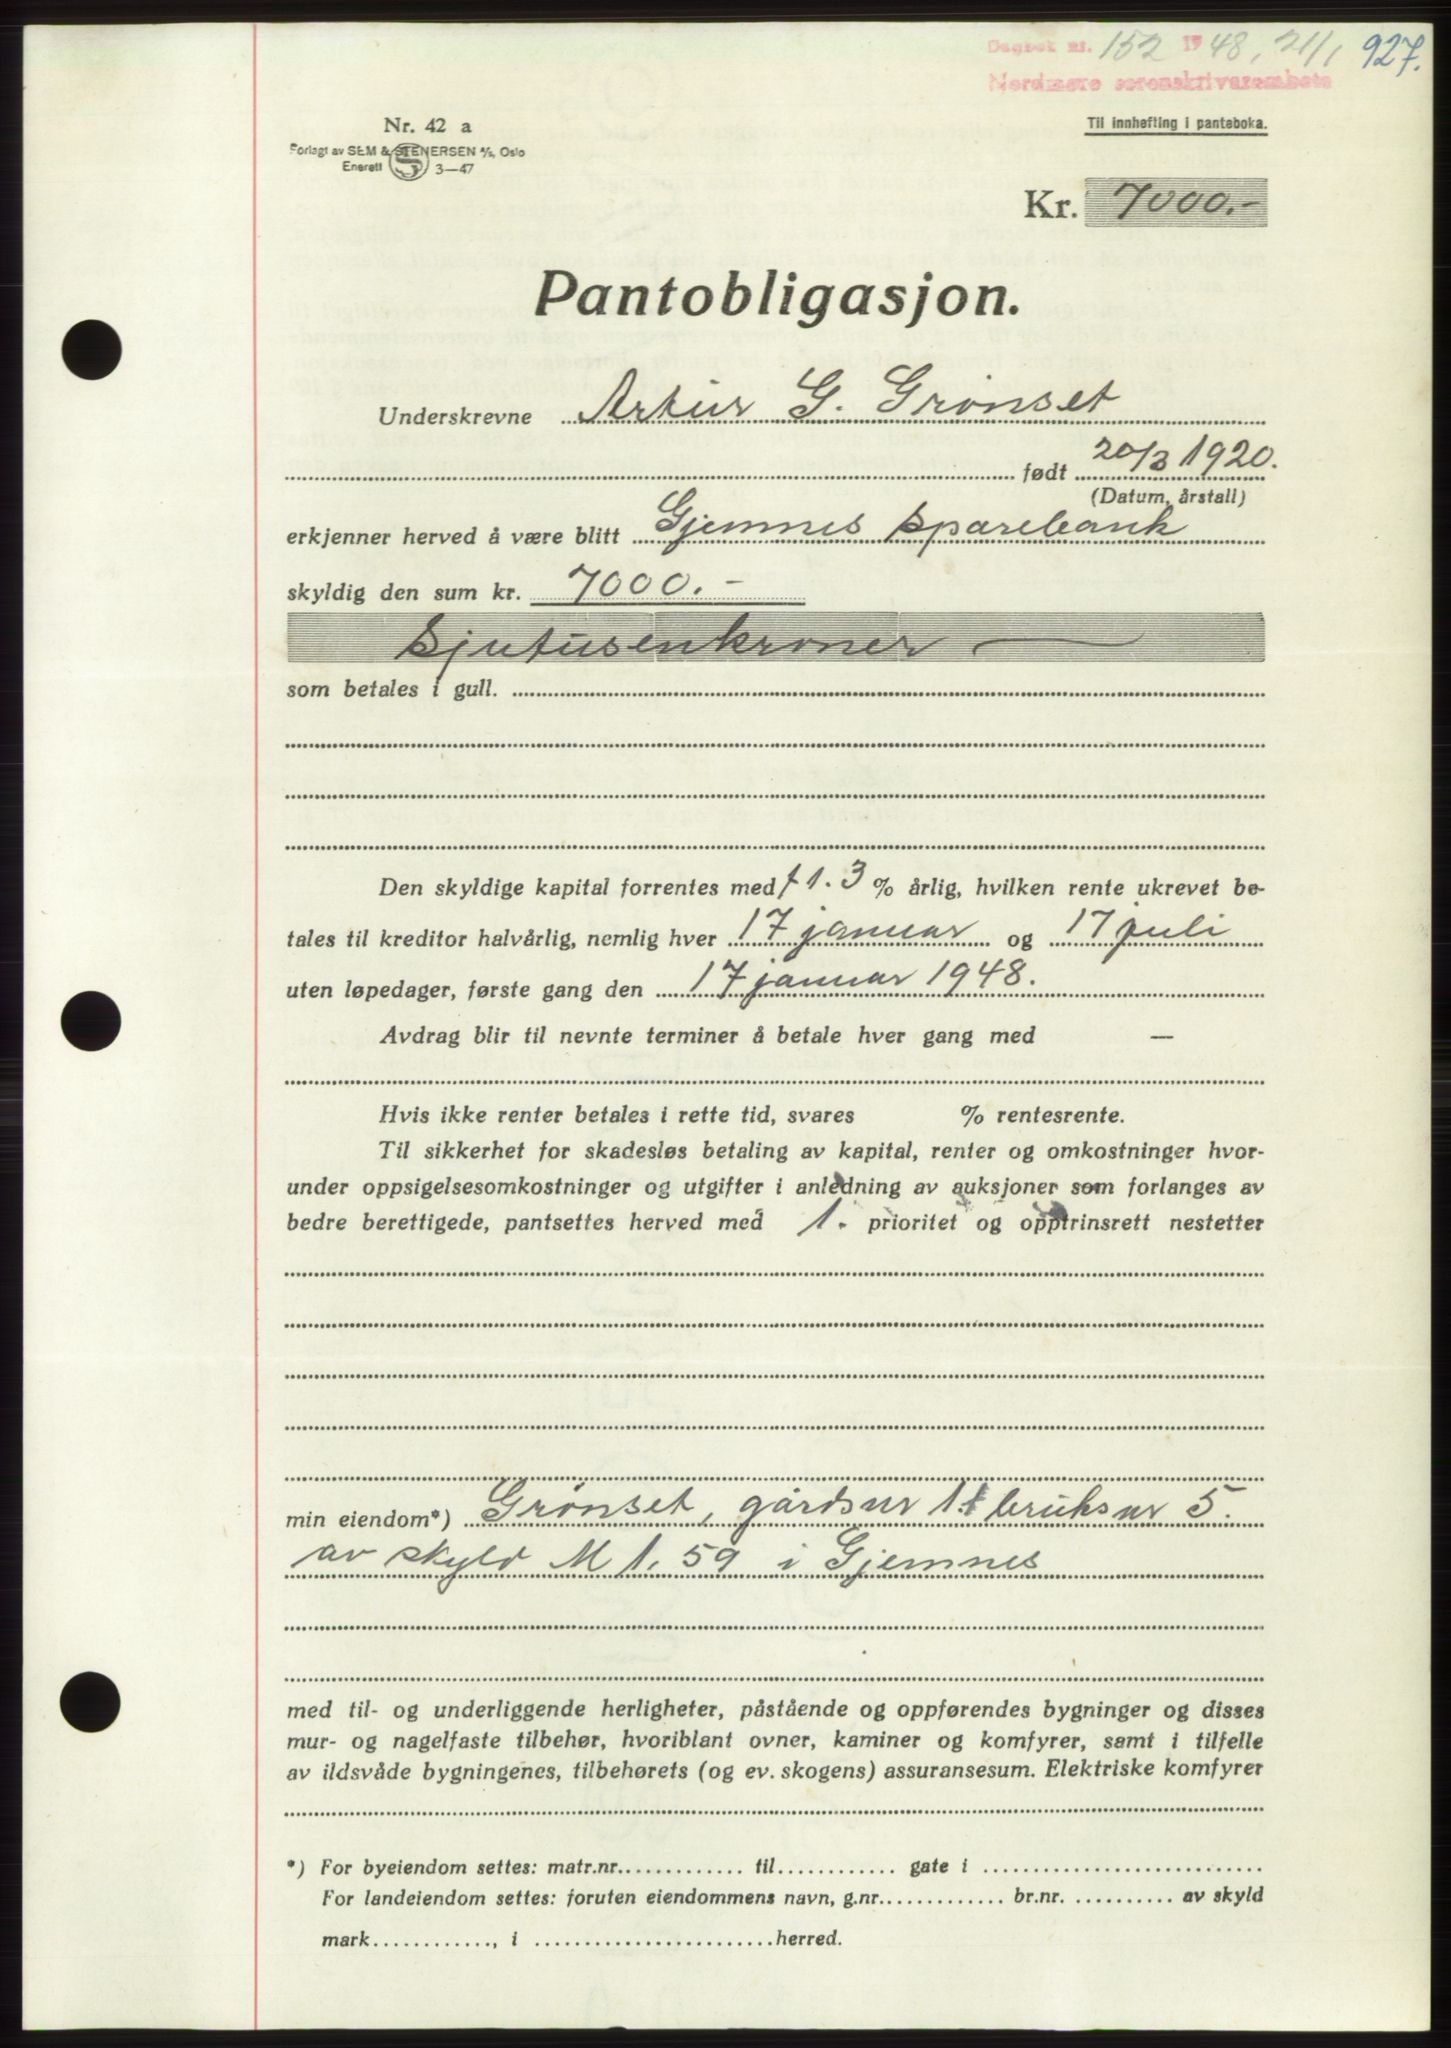 Dagbok nr. 152 1948, 21/1 927.
Nordmøre sorenskrivarembete
Nr. 42 a
Forlagt av SEM & STENERSEN A/S, Oslo
Enerett S 3—47
Til innhefting i panteboka.
Kr. 7000.-
Pantobligasjon.
Underskrevne Artur G. Grønset
født 20/3 1920.
(Datum, årstall)
erkjenner herved å være blitt Gjemnes sparebank
skyldig den sum kr. 7000.-
sjutusenkroner —
som betales i gull.
Den skyldige kapital forrentes med f 1. 3 % årlig, hvilken rente ukrevet be-
tales til kreditor halvårlig, nemlig hver 17 januar og 17 juli
uten løpedager, første gang den 17 januar 1948.
Avdrag blir til nevnte terminer å betale hver gang med —
Hvis ikke renter betales i rette tid, svares % rentesrente.
Til sikkerhet for skadesløs betaling av kapital, renter og omkostninger hvor-
under oppsigelsesomkostninger og utgifter i anledning av auksjoner som forlanges av
bedre berettigede, pantsettes herved med 1. prioritet og opptrinsrett nestetter
min eiendom*) Grønset, gårdsnr 1 bruksnr 5.
av skyld M 1.59 i Gjemnes
med til- og underliggende herligheter, påstående og oppførendes bygninger og disses
mur- og nagelfaste tilbehør, hvoriblant ovner, kaminer og komfyrer, samt i tilfelle
av ildsvåde bygningenes, tilbehørets (og ev. skogens) assuransesum. Elektriske komfyrer
*) For byeiendom settes: matr.nr. til gate i
For landeiendom settes: foruten eiendommens navn, g.nr. br.nr. av skyld
mark , i herred.